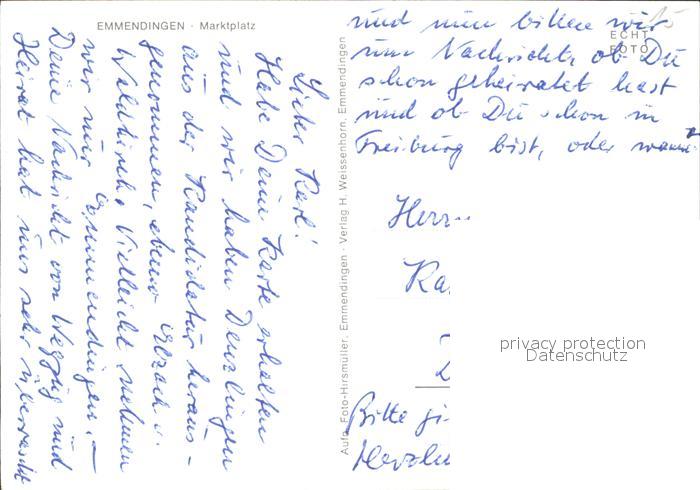 EMMENDINGEN · Marktplatz
Lieber Karl!
Habe Deine Karte erhalten
und wir haben Denzlingen
aus der Kandidatur heraus-
genommen, ebenso Elzach u.
Waldkirch. Vielleicht nehmen
wir nur Emmendingen. —
Deine Nachricht von Wegzug und
Heirat hat uns sehr überrascht
und nun bitten wir
um Nachricht, ob Du
schon geheiratet hast
und ob Du schon in
Freiburg bist, oder wann
ECHT
FOTO
Aufn. Foto-Hirsmüller, Emmendingen · Verlag H. Weissenhorn, Emmendingen
Herrn
Ka
D
Bitte
Herzli
privacy protection
Datenschutz